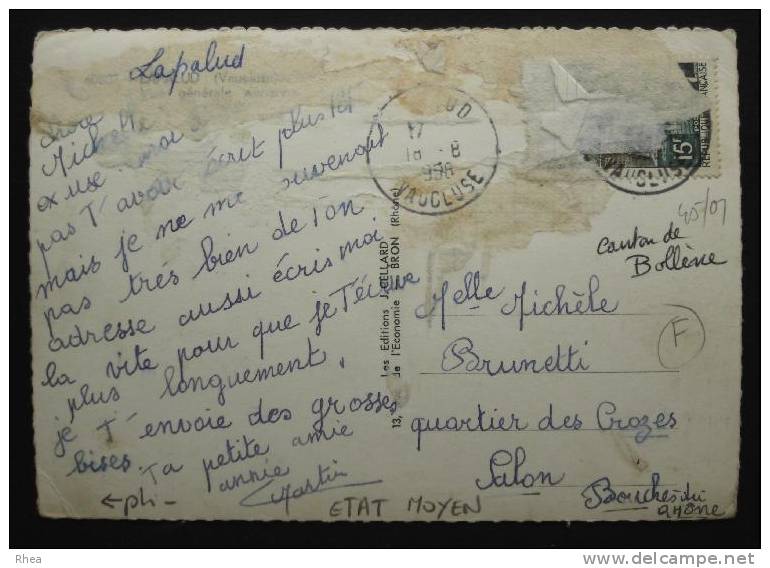 Lapalud
UD (Vaucluse)
générale aérienne
chère
Michelle
excuse moi
pas t'avoir écrit plus tôt
mais je ne me suvenait
pas très bien de ton
adresse aussi écris moi
la vite pour que je t'écrive
plus longuement.
je t'envoie des grosses
bises Ta petite amie
annie
Martin
UD
17
18 - 8
958
VAUCLUSE
15F
REPUBLIQUE FRANCAISE
VAUCLUSE
Les Editions J. CELLARD
13, de l'Economie BRON (Rhône)
45/07
canton de
Bollène
F
Melle Michèle
Brunetti
quartier des Crozes
Salon
Bouches du
Rhône
← pli -
ETAT MOYEN
Rhea
www.delcampe.net